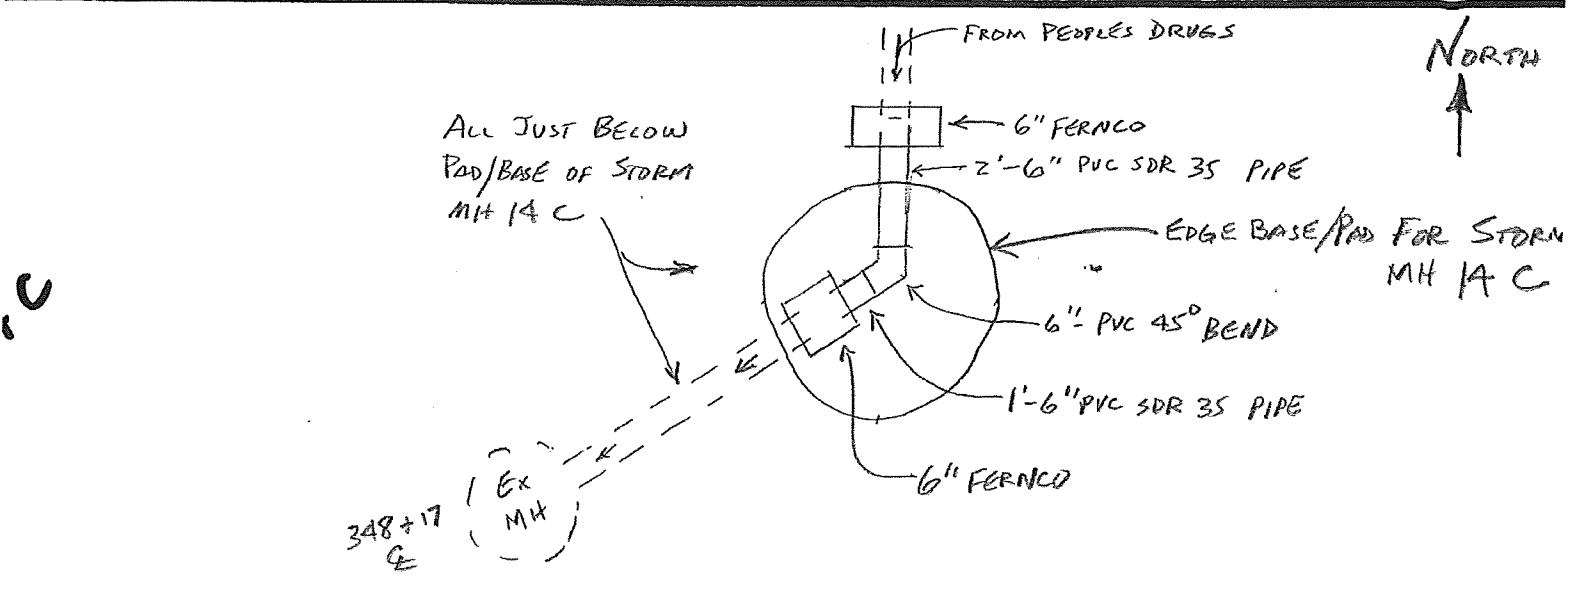 FROM PEOPLES DRUGS
NORTH
ALL JUST BELOW
PAD/BASE OF STORM
MH 14 C
6" FERNCO
2'-6" PVC SDR 35 PIPE
EDGE BASE/PAD FOR STORM
MH 14 C
6"- PVC 45° BEND
1'-6" PVC SDR 35 PIPE
6" FERNCO
EX
MH
348+17
CL